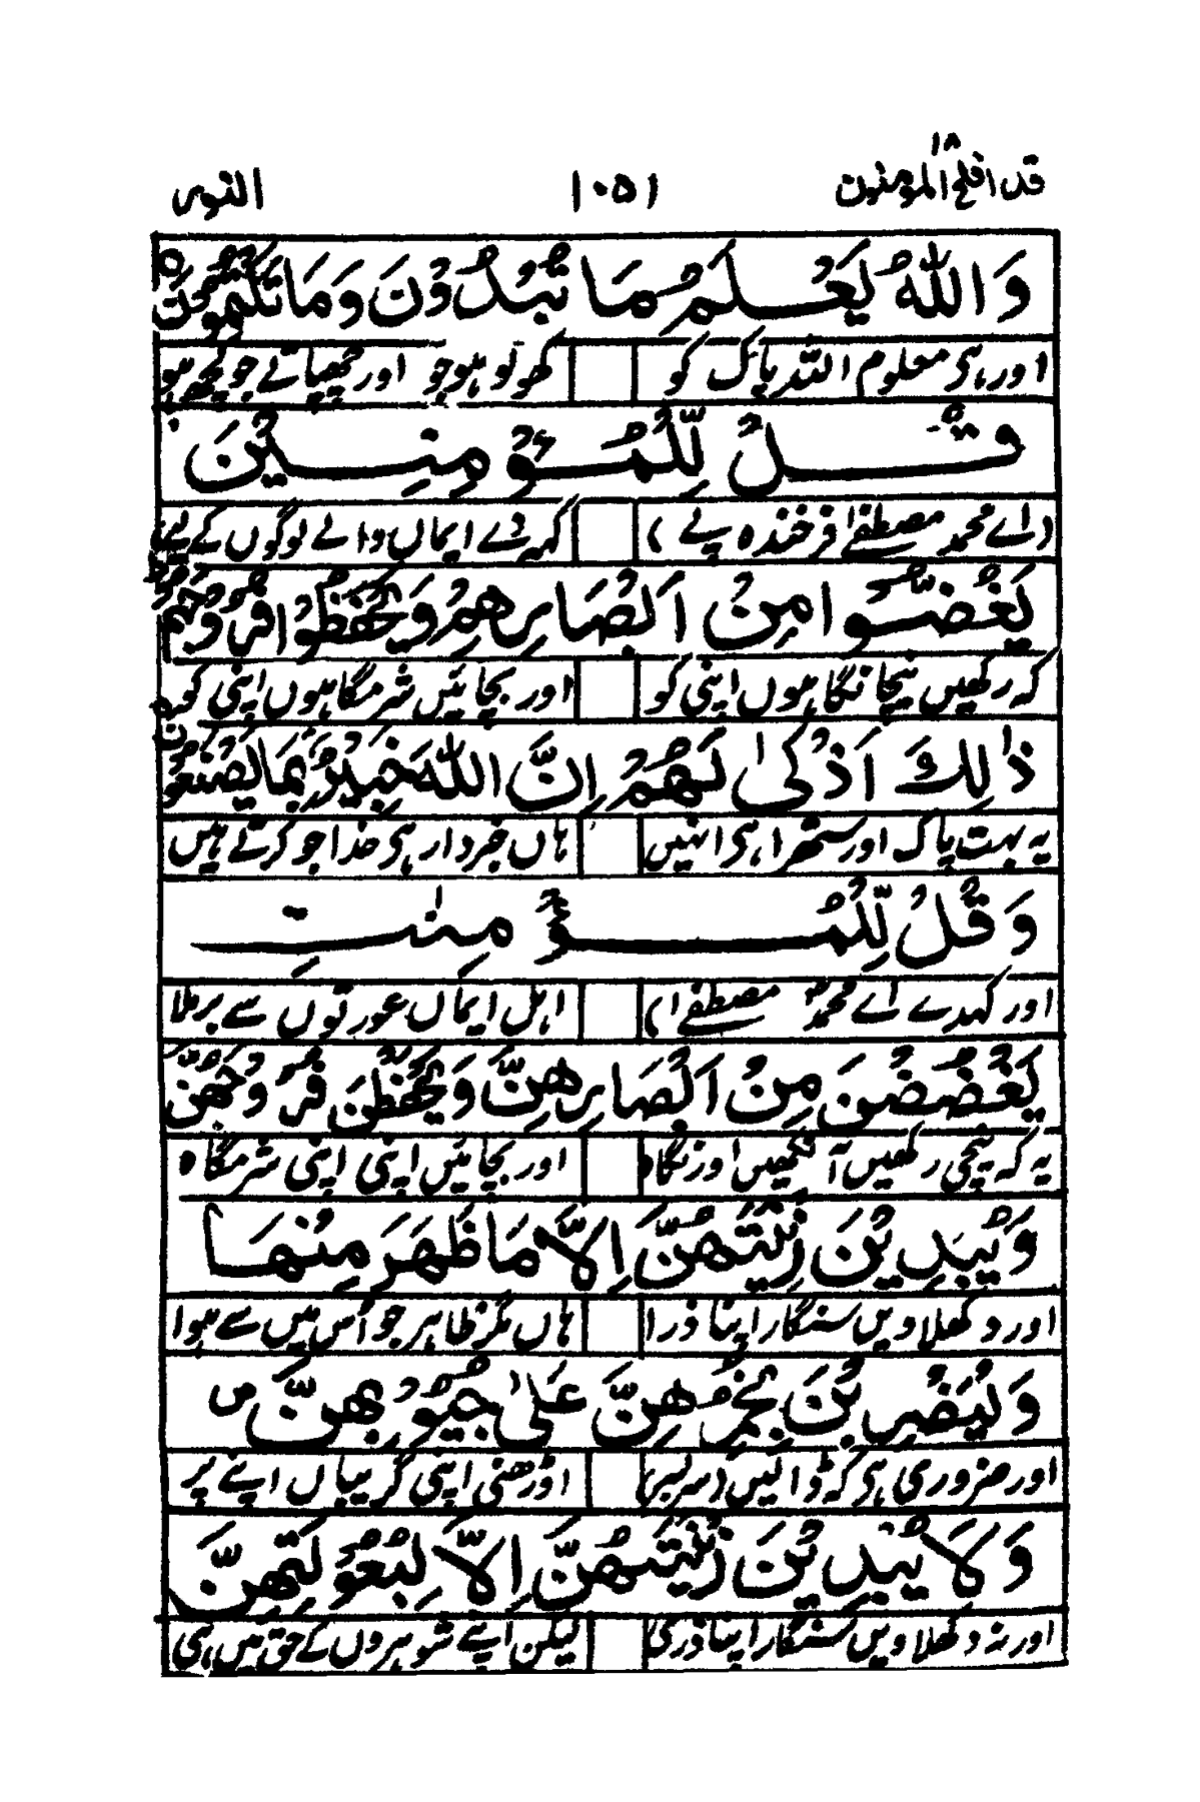 قد افلح المؤمنون ۱۸ ۱۰۵۱ النور
وَاللّٰهُ يَعْلَمُ مَا تُبْدُوْنَ وَمَا تَكْتُمُوْنَ
اور ہی معلوم اللہ پاک کو کھولو ہو جو اور چھپاتے جو کچھ ہو
قُلْ لِّلْمُؤْمِنِيْنَ
(اے محمد مصطفےٰ فرخندہ پے) کہدے ایماں والے لوگوں کے لیے
يَغُضُّوْا مِنْ اَبْصَارِهِمْ وَيَحْفَظُوْا فُرُوْجَهُمْ
کہ رکھیں نیچا نگاہوں اپنی کو اور بچائیں شرمگاہوں اپنی کو
ذٰلِكَ اَزْكٰى لَهُمْ اِنَّ اللّٰهَ خَبِيْرٌۢ بِمَا يَصْنَعُوْنَ
یہ بہت پاک اور ستھرا ہی انہیں ہاں خبردار ہی خدا جو کرتے ہیں
وَقُلْ لِّلْمُؤْمِنٰتِ
اور کہدے اے محمد مصطفےٰ) اہل ایماں عورتوں سے برملا
يَغْضُضْنَ مِنْ اَبْصَارِهِنَّ وَيَحْفَظْنَ فُرُوْجَهُنَّ
یہ کہ نیچی رکھیں آنکھیں اور نگاہ اور بچائیں اپنی اپنی شرمگاہ
وَيُبْدِيْنَ زِيْنَتَهُنَّ اِلَّا مَا ظَهَرَ مِنْهَا
اور دکھلاویں سنگار اپنا ذرا ہاں مگر ظاہر جو اُس میں سے ہوا
وَلْيَضْرِبْنَ بِخُمُرِهِنَّ عَلٰى جُيُوْبِهِنَّ ص
اور ضروری ہی کہ ڈالیں (سر بسر) اوڑھنی اپنی گریباں اپنے پر
وَلَا يُبْدِيْنَ زِيْنَتَهُنَّ اِلَّا لِبُعُوْلَتِهِنَّ
اور نہ دکھلاویں سنگار اپنا ذری لیکن اپنے شوہروں کے حق میں ہی